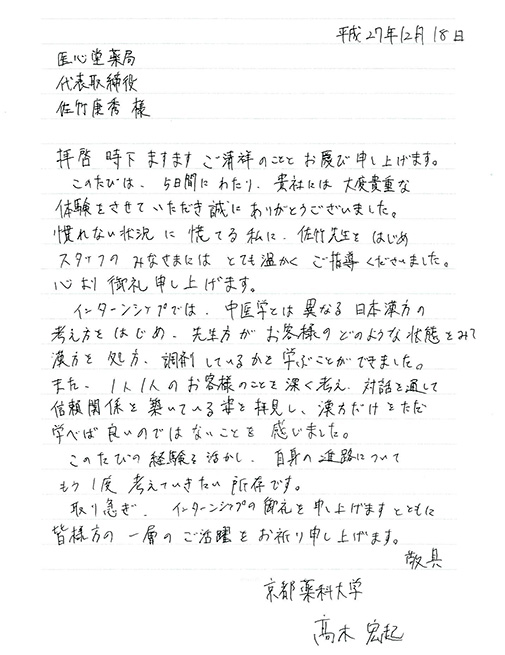 平成27年12月18日
匠心堂薬局
代表取締役
佐竹康秀 様
拝啓 時下 ますます ご清祥のこと お慶び申し上げます。
このたびは、5日間にわたり、貴社には 大変貴重な
体験をさせていただき誠にありがとうございました。
慣れない状況に慌てる私に、佐竹先生をはじめ
スタッフのみなさまには とても温かく ご指導くださいました。
心より御礼申し上げます。
インターンシップでは、中医学とは異なる日本漢方の
考え方をはじめ、先生方がお客様のどのような状態をみて
漢方を処方、調剤しているかを学ぶことができました。
また、1人1人のお客様のことを深く考え、対話を通して
信頼関係を築いている姿を拝見し、漢方だけをただ
学べば良いのではないことを感じました。
このたびの経験を活かし、自身の進路について
もう1度 考えていきたい所存です。
取り急ぎ、インターンシップの御礼を申し上げますとともに
皆様方の一層のご活躍をお祈り申し上げます。
敬具
京都薬科大学
髙木 宏起